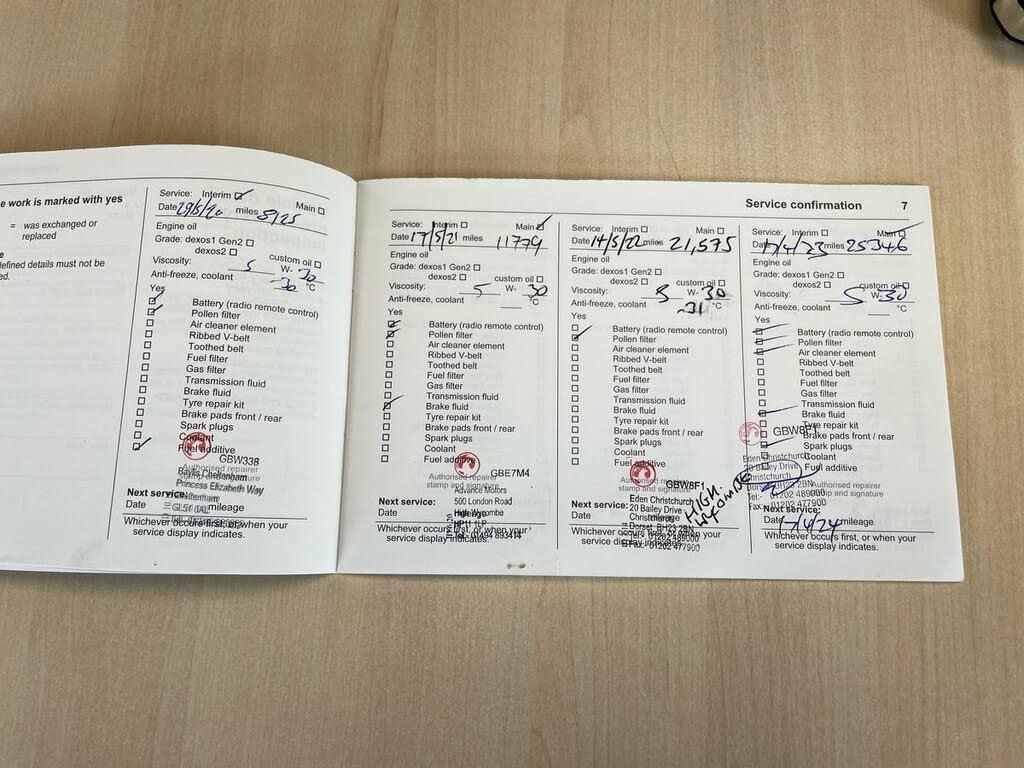 e work is marked with yes
= was exchanged or
replaced
efined details must not be
ed.
Service: Interim
Main
Date 29/5/20 miles 8125
Engine oil
Grade: dexos1 Gen2
dexos2
custom oil
Viscosity: 5 W- 30
Anti-freeze, coolant -30 °C
Yes
Battery (radio remote control)
Pollen filter
Air cleaner element
Ribbed V-belt
Toothed belt
Fuel filter
Gas filter
Transmission fluid
Brake fluid
Tyre repair kit
Brake pads front / rear
Spark plugs
Coolant
Fuel additive
GBW338
Authorised repairer
stamp and signature
Baylis Cheltenham
Princess Elizabeth Way
Cheltenham
GL51 0AL
Next service:
Date mileage
Whichever occurs first, or when your
service display indicates.
Service confirmation 7
Service: Interim Main
Date 17/5/21 miles 11779
Engine oil
Grade: dexos1 Gen2
dexos2 custom oil
Viscosity: 5 W- 30
Anti-freeze, coolant °C
Yes
Battery (radio remote control)
Pollen filter
Air cleaner element
Ribbed V-belt
Toothed belt
Fuel filter
Gas filter
Transmission fluid
Brake fluid
Tyre repair kit
Brake pads front / rear
Spark plugs
Coolant
Fuel additive
GBE7M4
Authorised repairer
stamp and signature
Advance Motors
500 London Road
High Wycombe
HP11 1LP
Tel: 01494 893414
Next service:
Date mileage
Whichever occurs first, or when your
service display indicates.
Service: Interim Main
Date 14/5/22 miles 21,575
Engine oil
Grade: dexos1 Gen2
dexos2 custom oil
Viscosity: 5 W- 30
Anti-freeze, coolant -31 °C
Yes
Battery (radio remote control)
Pollen filter
Air cleaner element
Ribbed V-belt
Toothed belt
Fuel filter
Gas filter
Transmission fluid
Brake fluid
Tyre repair kit
Brake pads front / rear
Spark plugs
Coolant
Fuel additive
GBW8F1
Authorised repairer
stamp and signature
Eden Christchurch
20 Bailey Drive
Christchurch
Dorset BH23 2BN
Tel: 01202 489000
Fax: 01202 477900
HIGH-
WYCOMBE
Next service:
Date mileage
Whichever occurs first, or when your
service display indicates.
Service: Interim Main
Date 17/4/23 miles 25346
Engine oil
Grade: dexos1 Gen2
dexos2 custom oil
Viscosity: 5 W- 30
Anti-freeze, coolant °C
Yes
Battery (radio remote control)
Pollen filter
Air cleaner element
Ribbed V-belt
Toothed belt
Fuel filter
Gas filter
Transmission fluid
Brake fluid
Tyre repair kit
Brake pads front / rear
Spark plugs
Coolant
Fuel additive
GBW8F1
Authorised repairer
stamp and signature
Eden Christchurch
20 Bailey Drive
Christchurch
Dorset BH23 2BN
Tel:- 01202 489000
Fax 01202 477900
Next service:
Date 17/4/24 mileage
Whichever occurs first, or when your
service display indicates.